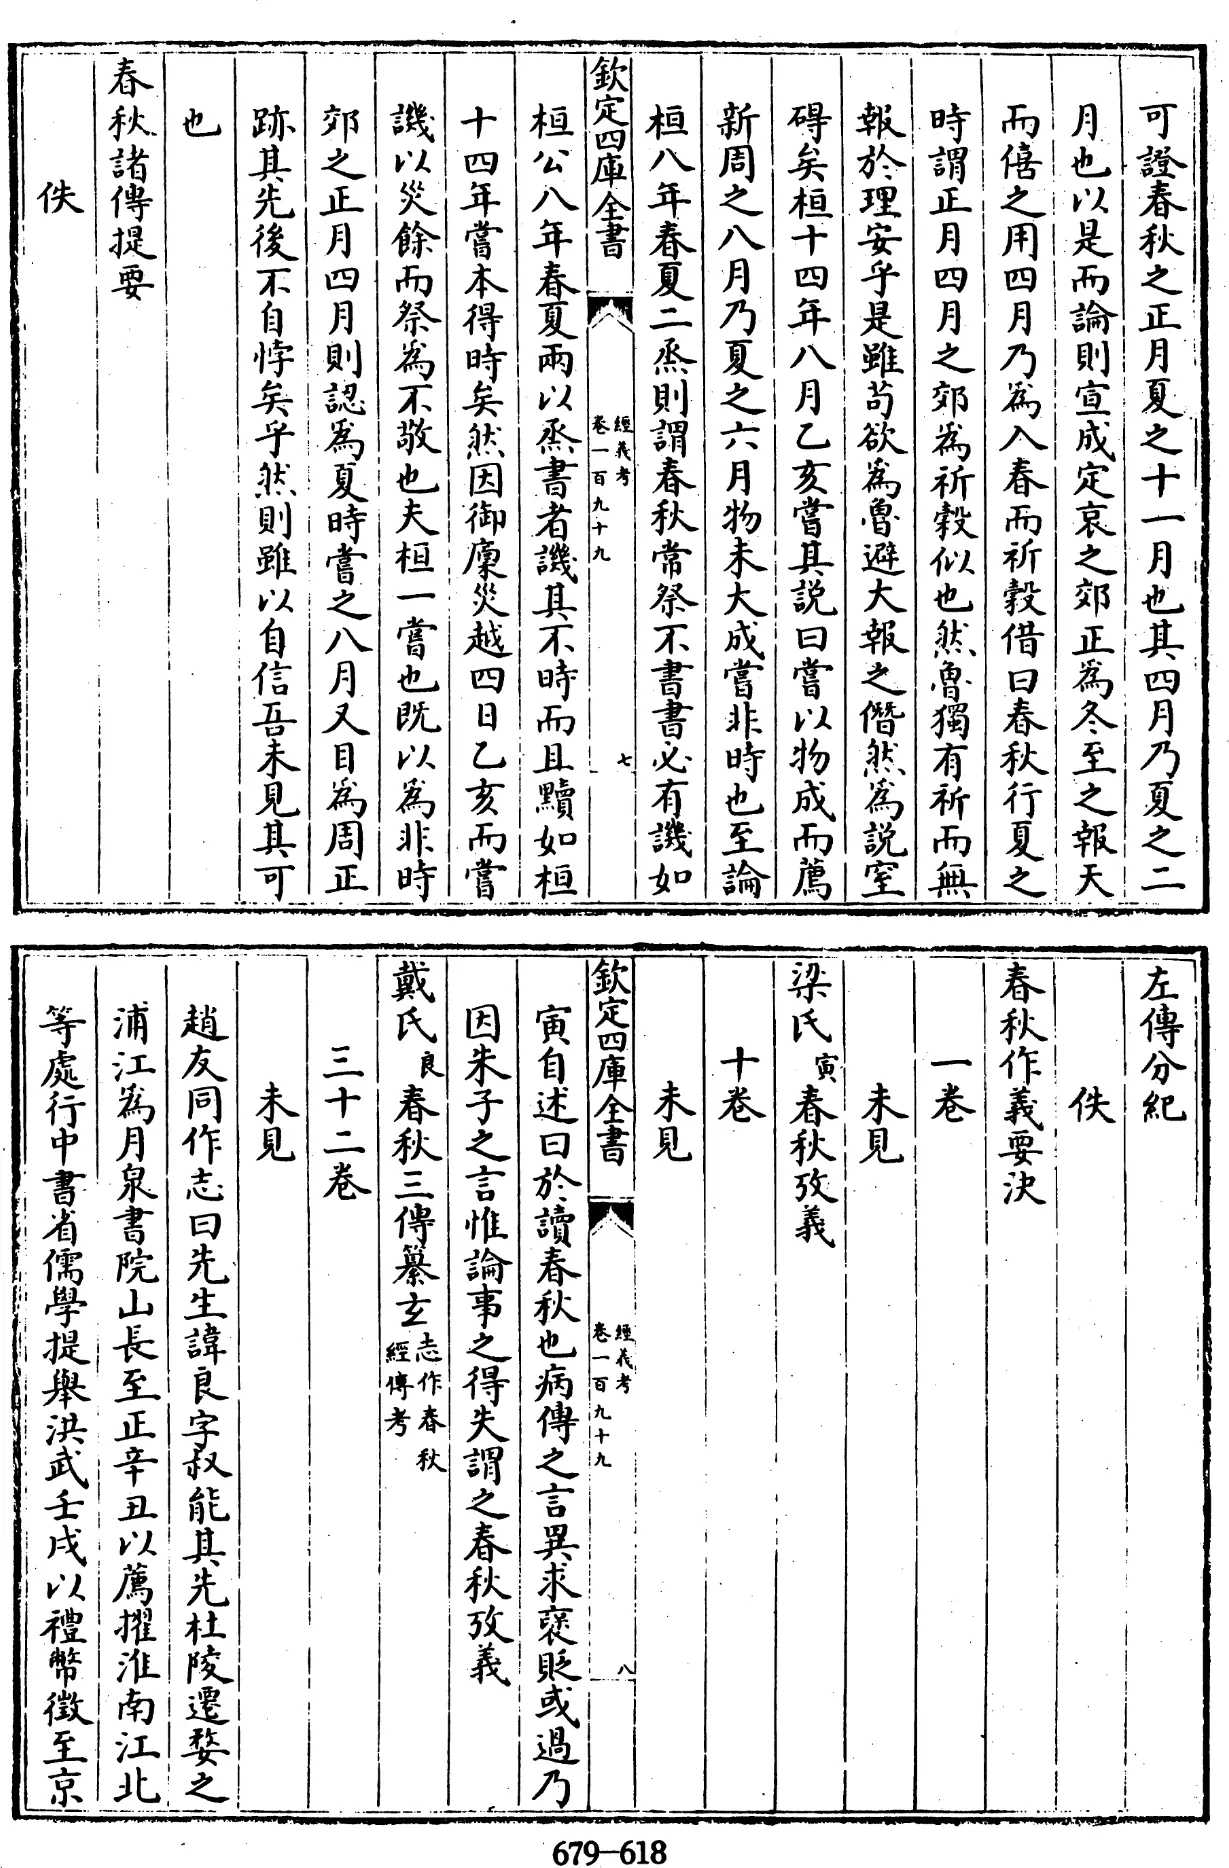 可證春秋之正月夏之十一月也其四月乃夏之二
月也以是而論則宣成定哀之郊正為冬至之報天
而僖之用四月乃為入春而祈穀借曰春秋行夏之
時謂正月四月之郊為祈穀似也然魯獨有祈而無
報於理安乎是雖苟欲為魯避大報之僭然為說窒
碍矣桓十四年八月乙亥嘗其説曰嘗以物成而薦
新周之八月乃夏之六月物未大成嘗非時也至論
桓八年春夏二烝則謂春秋常祭不書書必有譏如
欽定四庫全書
經義考
卷一百九十九
七
桓公八年春夏兩以烝書者譏其不時而且黷如桓
十四年嘗本得時矣然因御廩災越四日乙亥而嘗
譏以災餘而祭為不敬也夫桓一嘗也既以為非時
郊之正月四月則認為夏時嘗之八月又目為周正
跡其先後不自悖矣乎然則雖以自信吾未見其可
也
春秋諸傳提要
佚
左傳分紀
佚
春秋作義要決
一卷
未見
梁氏寅春秋攷義
十卷
未見
欽定四庫全書
經義考
卷一百九十九
八
寅自述曰於讀春秋也病傳之言異求褒貶或過乃
因朱子之言惟論事之得失謂之春秋攷義
戴氏良春秋三傳纂玄志作春秋經傳考
三十二卷
未見
趙友同作志曰先生諱良字叔能其先杜陵遷婺之
浦江為月泉書院山長至正辛丑以薦擢淮南江北
等處行中書省儒學提舉洪武壬戌以禮幣徵至京
679-618